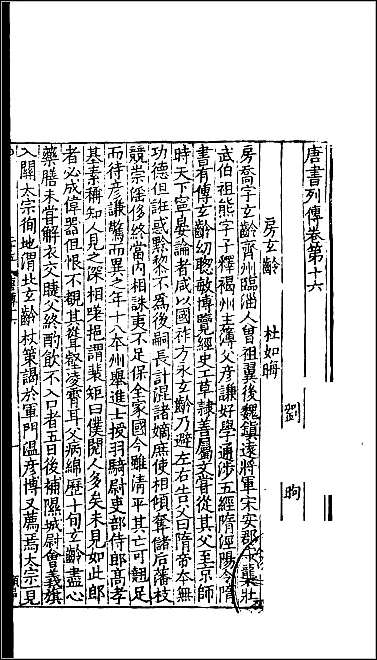 唐書列傳卷第十六
劉 昫
房玄齡 杜如晦
房喬字玄齡齊州臨淄人曾祖翼後魏鎮遠將軍宋安郡守襲壯
武伯祖熊字子釋褐州主簿父彥謙好學通涉五經隋涇陽令隋
書有傳玄齡幼聰敏博覽經史工草隸善屬文嘗從其父至京師
時天下寧晏論者咸以國祚方永玄齡乃避左右告父曰隋帝本無
功德但誑惑黔黎不爲後嗣長計混諸嫡庶使相傾奪儲后藩枝
競崇淫侈終當內相誅夷不足保全家國今雖清平其亡可翹足
而待彥謙驚而異之年十八本州舉進士授羽騎尉吏部侍郎高孝
基素稱知人見之深相嗟挹謂裴矩曰僕閱人多矣未見如此郎
者必成偉器但恨不觀其聳壑凌霄耳父病綿歷十旬玄齡盡心
藥膳未嘗解衣交睫父終酌飲不入口者五日後補隰城尉會義旗
入關太宗徇地渭北玄齡杖策謁於軍門溫彥博又薦焉太宗見